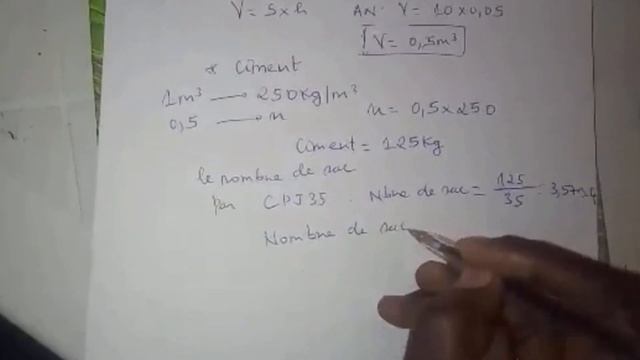 V = S x h AN: V = 10 x 0,05
V = 0,5m³
* Ciment
1m³ → 250Kg/m³
0,5 → x x = 0,5 x 250
Ciment = 125Kg
le nombre de sac
par CPJ35. Nbre de sac = 125/35 = 3,57
Nombre de sac